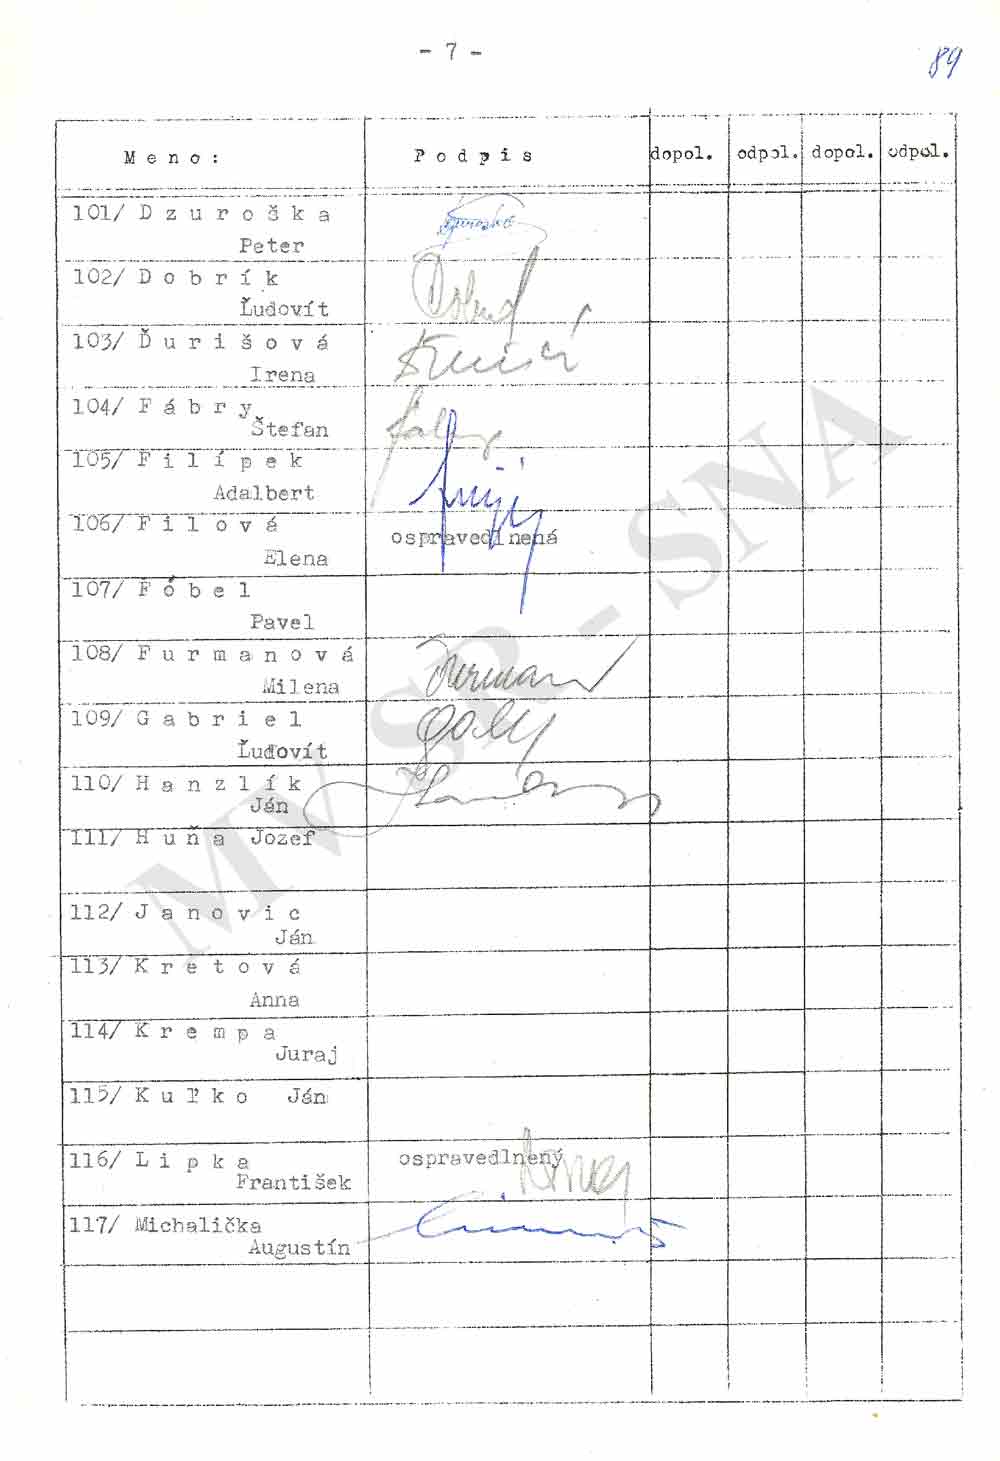 - 7 -
89
M e n o : P o d p i s dopol. odpol. dopol. odpol.
101/ D z u r o š k a
Peter
102/ D o b r í k
Ľudovít
103/ Ď u r i š o v á
Irena
104/ F á b r y
Štefan
105/ F i l í p e k
Adalbert
106/ F i l o v á
ospravedlnená
Elena
107/ F ó b e l
Pavel
108/ F u r m a n o v á
Milena
109/ G a b r i e l
Ľudovít
110/ H a n z l í k
Ján
111/ H u ň a Jozef
112/ J a n o v i c
Ján
113/ K r e t o v á
Anna
114/ K r e m p a
Juraj
115/ K u ľ k o Ján
116/ L i p k a ospravedlnený
František
117/ Michalička
Augustín
MV SR - SNA